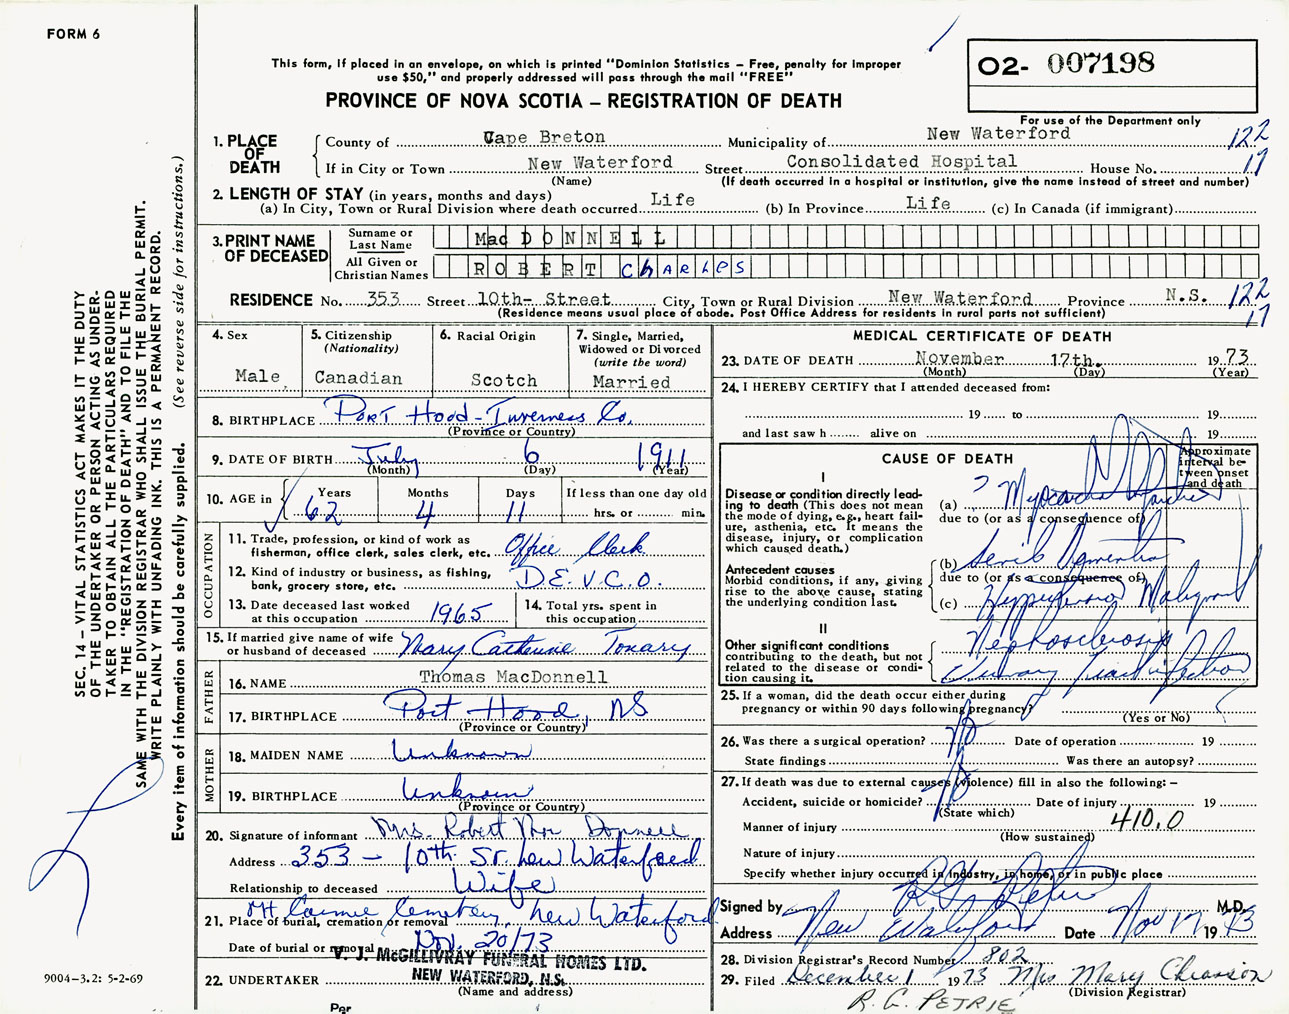 FORM 6
This form, if placed in an envelope, on which is printed "Dominion Statistics — Free, penalty for improper
use $50," and properly addressed will pass through the mail "FREE"
PROVINCE OF NOVA SCOTIA — REGISTRATION OF DEATH
O2- 007198
For use of the Department only
1. PLACE OF DEATH
County of Cape Breton Municipality of New Waterford 122
If in City or Town New Waterford Street Consolidated Hospital House No. 17
(Name) (If death occurred in a hospital or institution, give the name instead of street and number)
2. LENGTH OF STAY (in years, months and days)
(a) In City, Town or Rural Division where death occurred Life (b) In Province Life (c) In Canada (if immigrant)
3. PRINT NAME OF DECEASED
Surname or Last Name MacDONNELL
All Given or Christian Names ROBERT CHARLES
RESIDENCE No. 353 Street 10th- Street City, Town or Rural Division New Waterford Province N.S. 122
(Residence means usual place of abode. Post Office Address for residents in rural parts not sufficient) 17
4. Sex
Male
5. Citizenship
(Nationality)
Canadian
6. Racial Origin
Scotch
7. Single, Married,
Widowed or Divorced
(write the word)
Married
8. BIRTHPLACE Port Hood - Inverness Co.
(Province or Country)
9. DATE OF BIRTH July 6 1911
(Month) (Day) (Year)
10. AGE in Years Months Days If less than one day old
62 4 11 hrs. or min.
OCCUPATION
11. Trade, profession, or kind of work as
fisherman, office clerk, sales clerk, etc. Office Clerk
12. Kind of industry or business, as fishing,
bank, grocery store, etc. D.E.V.C.O.
13. Date deceased last worked
at this occupation 1965
14. Total yrs. spent in
this occupation
15. If married give name of wife
or husband of deceased Mary Catherine Tonary
FATHER
16. NAME Thomas MacDonnell
17. BIRTHPLACE Port Hood, NS
(Province or Country)
MOTHER
18. MAIDEN NAME Unknown
19. BIRTHPLACE Unknown
(Province or Country)
20. Signature of informant Mrs. Robert Mac Donnell
Address 353 - 10th St. New Waterford
Relationship to deceased Wife
21. Mt Carmel Cemetery, New Waterford
Place of burial, cremation or removal
Date of burial or removal Nov. 20/73
V. J. McGILLIVRAY FUNERAL HOMES LTD.
NEW WATERFORD, N.S.
22. UNDERTAKER
(Name and address)
Per
MEDICAL CERTIFICATE OF DEATH
23. DATE OF DEATH November 17th. 1973
(Month) (Day) (Year)
24. I HEREBY CERTIFY that I attended deceased from:
19 to 19
and last saw h alive on 19
CAUSE OF DEATH
Approximate
interval be-
tween onset
and death
I
Disease or condition directly lead-
ing to death (This does not mean
the mode of dying, e.g., heart fail-
ure, asthenia, etc. It means the
disease, injury, or complication
which caused death.)
(a) ? Myocardial Infarction
due to (or as a consequence of)
Antecedent causes
Morbid conditions, if any, giving
rise to the above cause, stating
the underlying condition last.
(b) Senile Dementia
due to (or as a consequence of)
(c) Hypertension Malignant
II
Other significant conditions
contributing to the death, but not
related to the disease or condi-
tion causing it.
Nephrosclerosis
Urinary Tract Infection
25. If a woman, did the death occur either during
pregnancy or within 90 days following pregnancy?
(Yes or No)
26. Was there a surgical operation? No Date of operation 19
State findings Was there an autopsy?
27. If death was due to external causes (violence) fill in also the following: —
Accident, suicide or homicide? Date of injury 19
(State which)
Manner of injury 410.0
(How sustained)
Nature of injury
Specify whether injury occurred in industry, in home, or in public place
Signed by R G Petrie M.D.
Address New Waterford Date Nov 17 1973
28. Division Registrar's Record Number 802
29. Filed December 1 1973 Mrs Mary Chiasson
(Division Registrar)
R. G. PETRIE
SEC. 14 — VITAL STATISTICS ACT MAKES IT THE DUTY
OF THE UNDERTAKER OR PERSON ACTING AS UNDER-
TAKER TO OBTAIN ALL THE PARTICULARS REQUIRED
IN THE "REGISTRATION OF DEATH" AND TO FILE THE
SAME WITH THE DIVISION REGISTRAR WHO SHALL ISSUE THE BURIAL PERMIT.
WRITE PLAINLY WITH UNFADING INK. THIS IS A PERMANENT RECORD.
Every item of information should be carefully supplied. (See reverse side for instructions.)
9004—3.2: 5-2-69